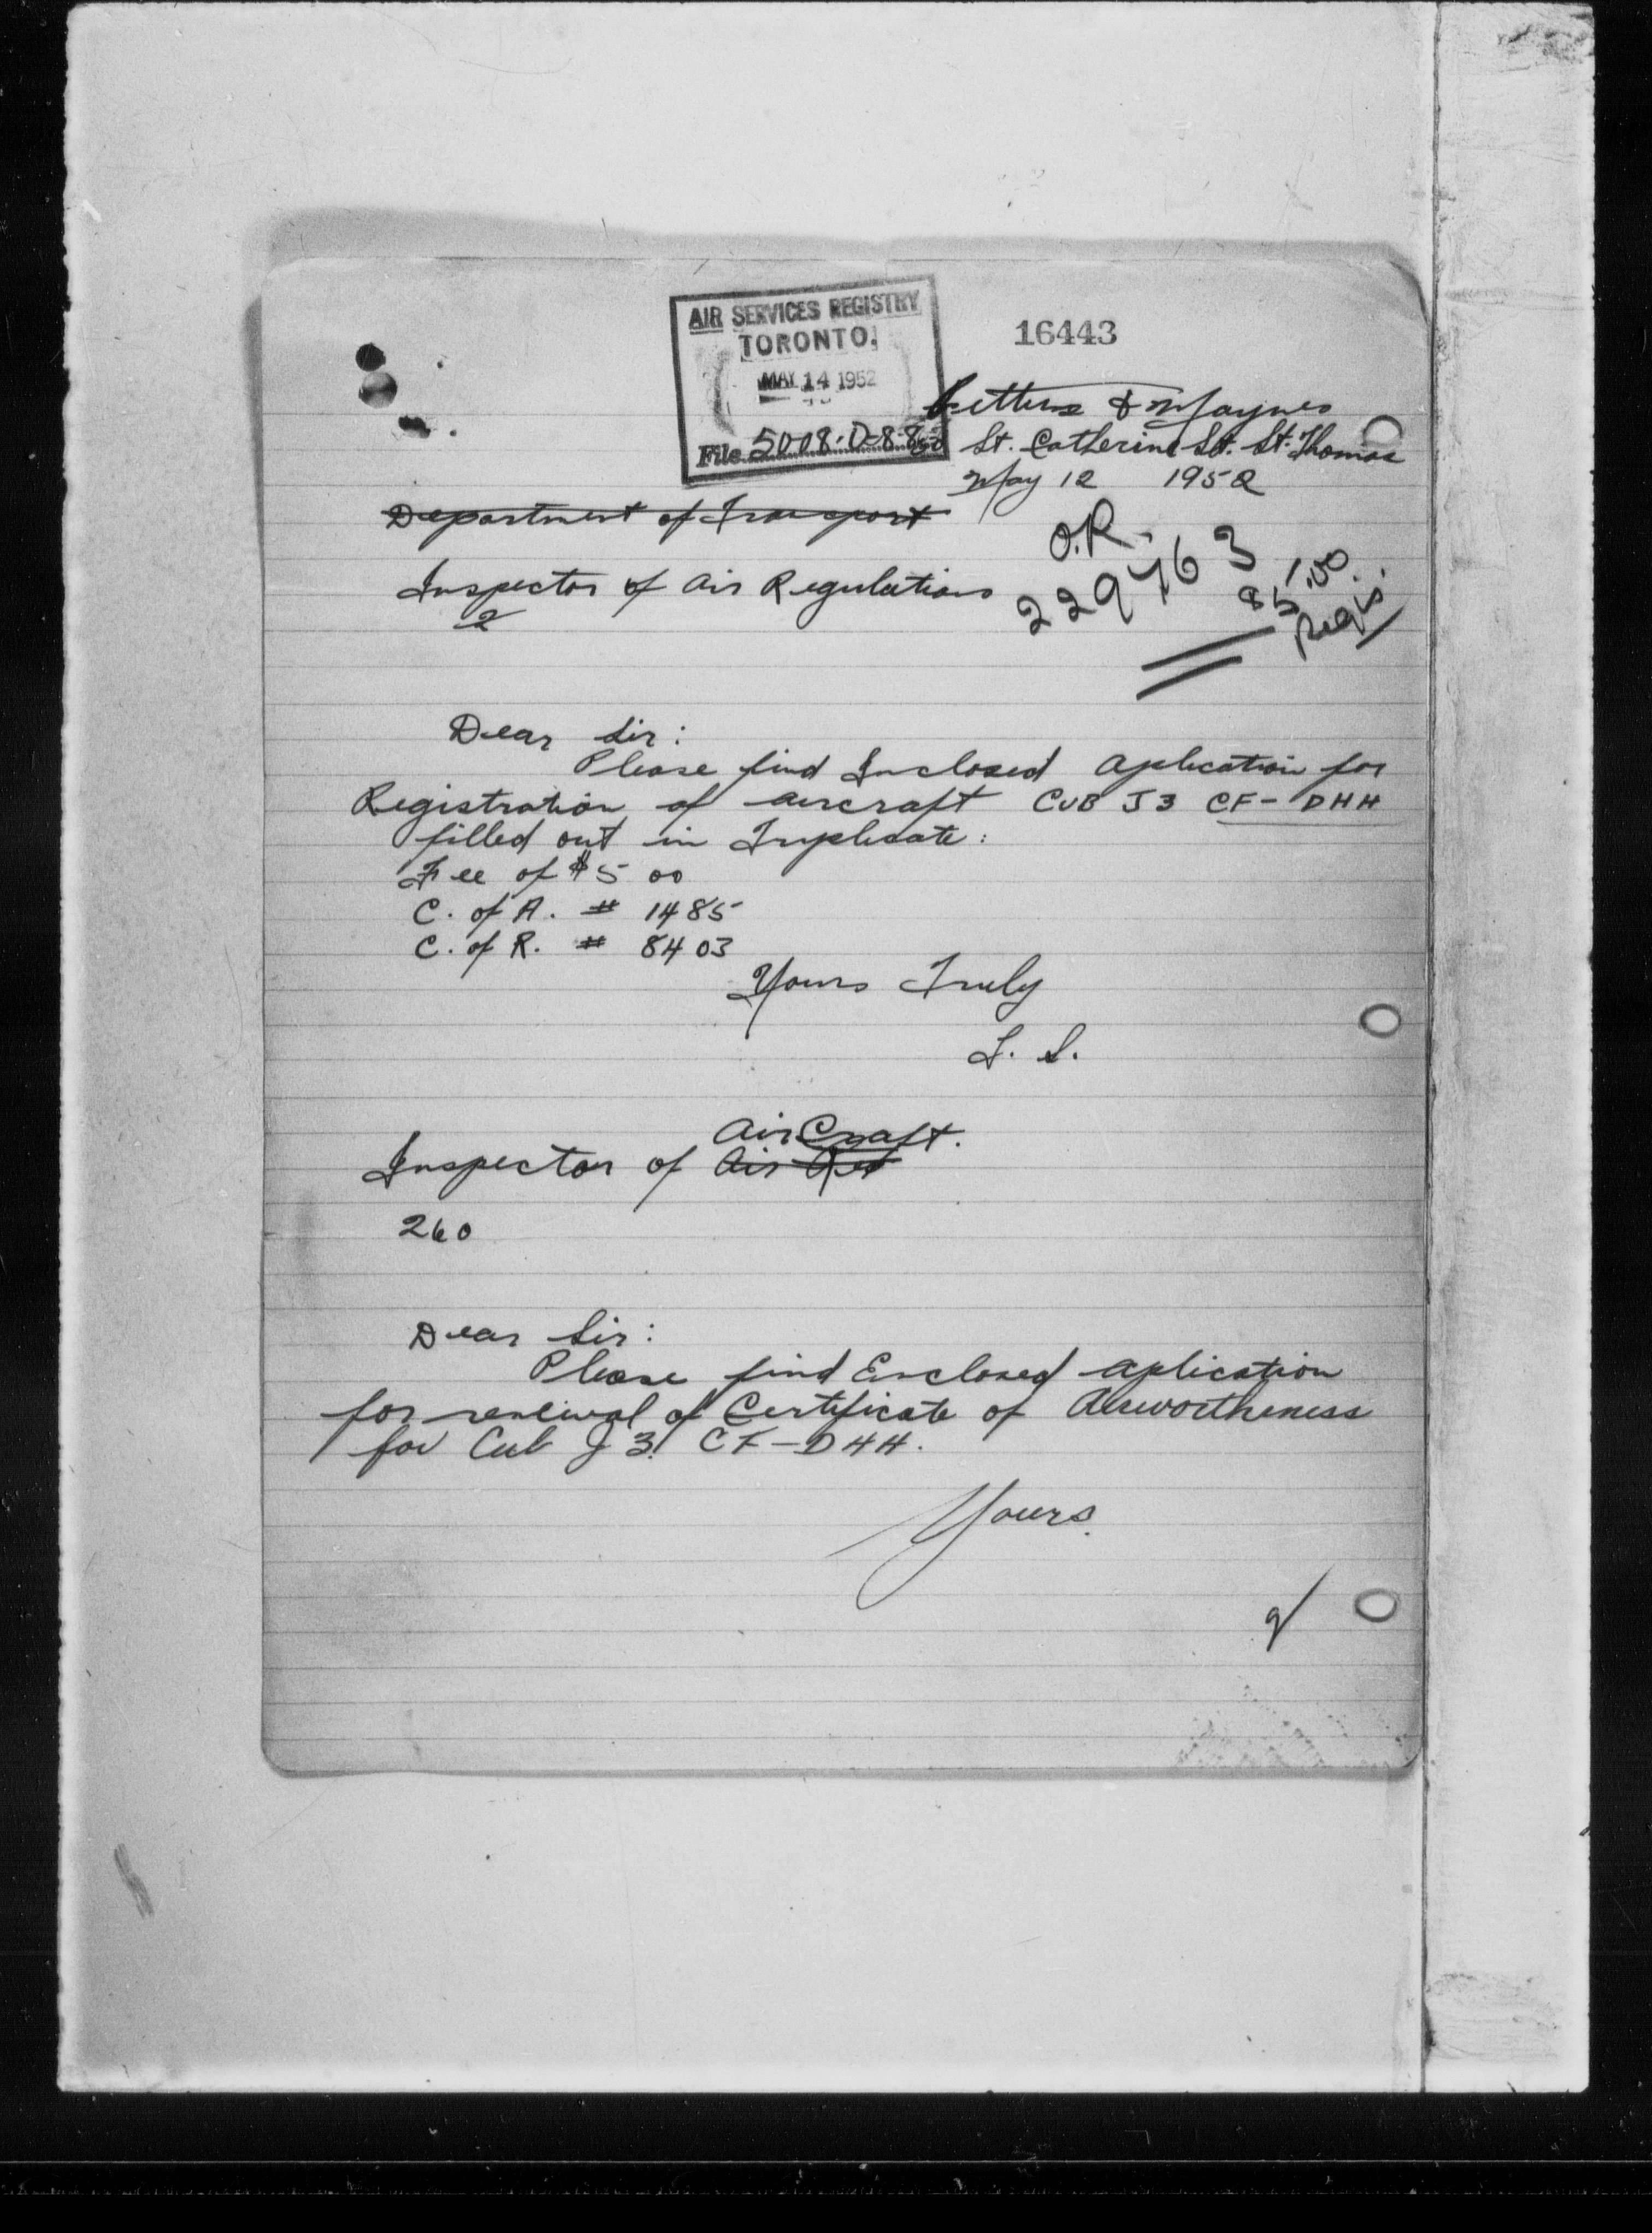 AIR SERVICES REGISTRY
TORONTO.
MAY 14 1952
File 5008-D-8-8
16443
& Maynes
St. Catherine St. St. Thomas
May 12 1952
Department of Transport
O.R.
229763
$5.00
Regis.
Inspector of Air Regulations
2
Dear Sir:
Please find Inclosed Aplication for
Registration of aircraft CUB J3 CF-DHH
filled out in Triplicate:
Fee of $5 00
C. of A. # 1485
C. of R. # 8403
Yours Truly
L. S.
AirCraft.
Inspector of Air Ret
260
Dear Sir:
Please find Enclosed aplication
for renewal of Certificate of Airwortheness
for Cub J3. CF-DHH.
Yours.